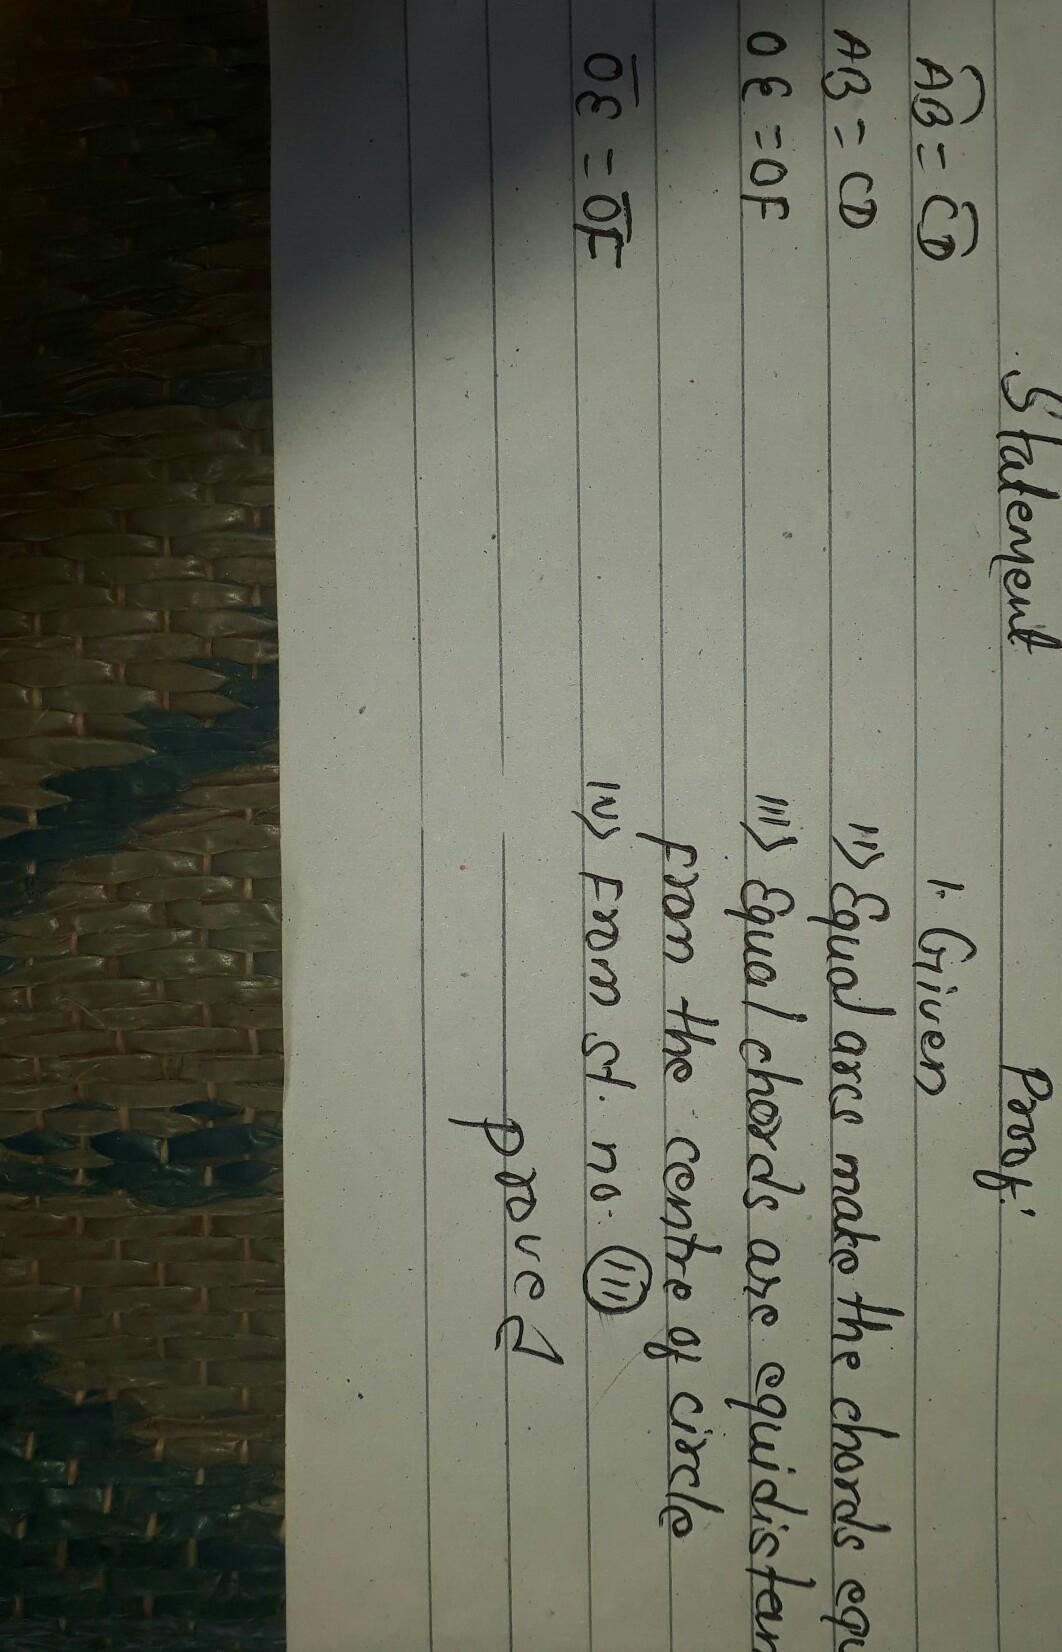 Statement Proof:
A͡B = C͡D 1. Given
AB = CD ii) Equal arcs make the chords equ
OE = OF iii) Equal chords are equidistan
from the centre of circle
O̅E̅ = O̅F̅ iv) From st. no. (iii)
proved